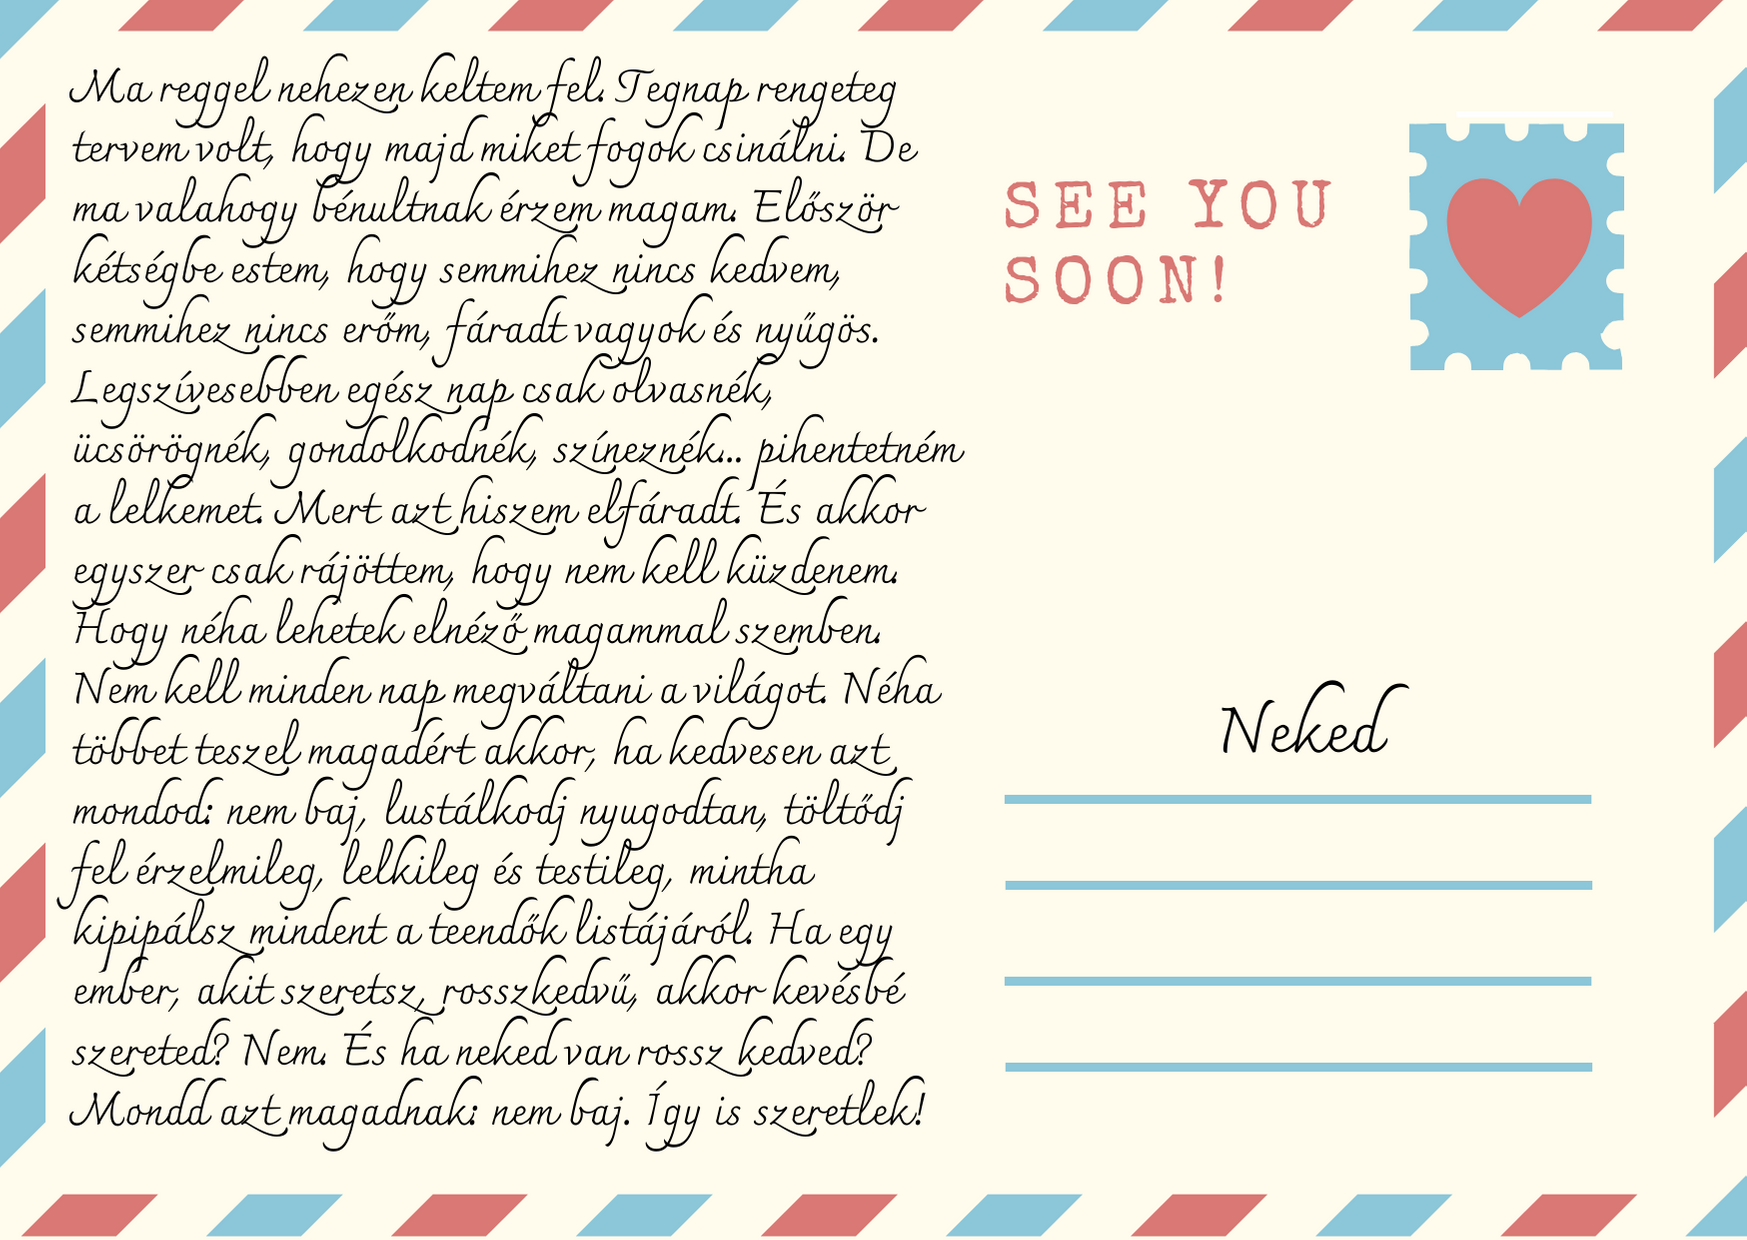 Ma reggel nehezen keltem fel. Tegnap rengeteg
tervem volt, hogy majd miket fogok csinálni. De
ma valahogy bénultnak érzem magam. Először
kétségbe estem, hogy semmihez nincs kedvem,
semmihez nincs erőm, fáradt vagyok és nyűgös.
Legszívesebben egész nap csak olvasnék,
ücsörögnék, gondolkodnék, színeznék... pihentetném
a lelkemet. Mert azt hiszem elfáradt. És akkor
egyszer csak rájöttem, hogy nem kell küzdenem.
Hogy néha lehetek elnéző magammal szemben.
Nem kell minden nap megváltani a világot. Néha
többet teszel magadért akkor, ha kedvesen azt
mondod: nem baj, lustálkodj nyugodtan, töltődj
fel érzelmileg, lelkileg és testileg, mintha
kipipálsz mindent a teendők listájáról. Ha egy
ember, akit szeretsz, rosszkedvű, akkor kevésbé
szereted? Nem. És ha neked van rossz kedved?
Mondd azt magadnak: nem baj. Így is szeretlek!
SEE YOU
SOON!
Neked